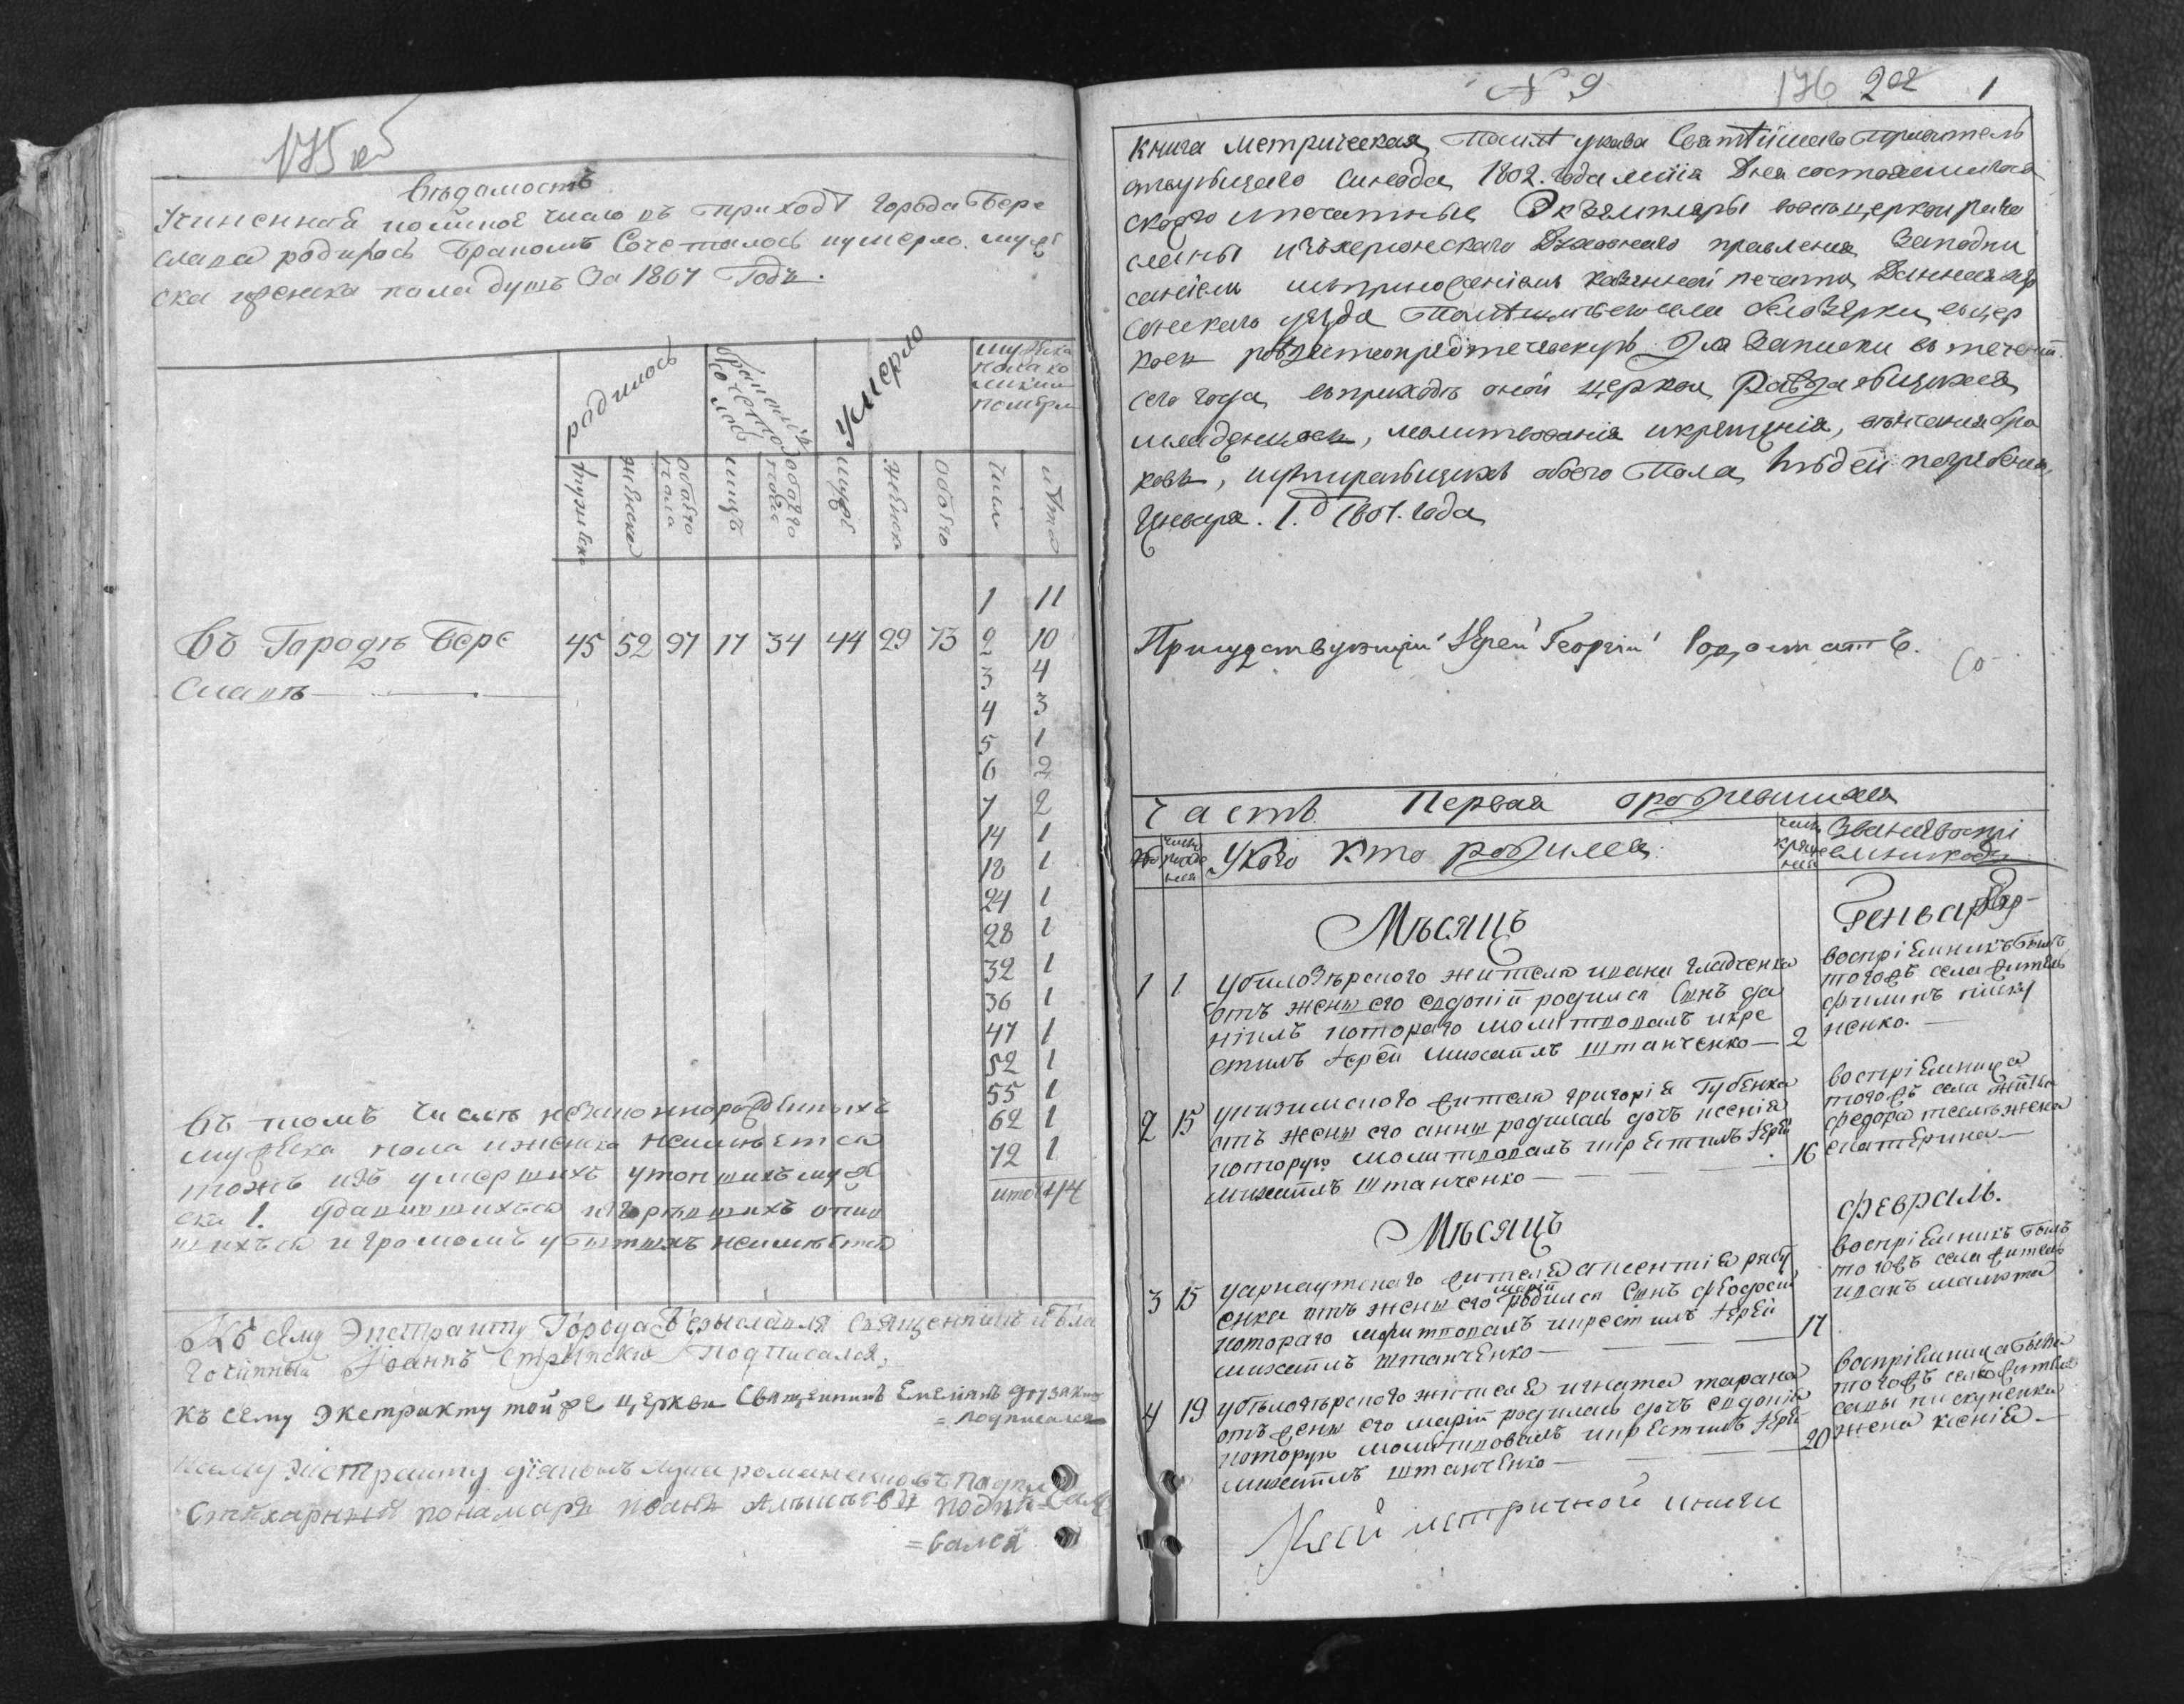 175 об
Вѣдомость
Учиненная коликое число въ приходѣ города Бере
слава родилось бракомъ Сочеталось иумерло. муже
ска иженска пола душъ За 1807 Годъ.
родилось
бракомъ сочеталось
умерло
мужеска пола ко
ликихъ
померли
мужеска
женска
обоего пола
лицъ
обоего пола
муже
женска
обоего
числ
лѣта
Въ Городѣ Бере
славѣ
45 52 97 17 34 44 29 73
1 11
2 10
3 4
4 3
5 1
6 2
7 2
14 1
18 1
24 1
28 1
32 1
36 1
47 1
52 1
55 1
62 1
72 1
итого 44
Въ томъ Числѣ незаконнорожденныхъ
мужеска пола иженска неимѣется
тожъ изъ умершихъ утопшихъ муже
ска 1. удавившихся игоревшихъ опив
шихъся игромомъ убитыхъ неимѣется
Къ сему Экстракту Города Бериславля Священникъ и Бла
гочинный Иоаннъ Стрижевскій подписался,
Къ сему экстракту той же церкви Священникъ Емеліянъ
= подписался
Ксему экстракту діяконъ Лука романенковъ подпи
Стихарный понамарь Иванъ Алексѣевъ подпи-
=сался
N 9
176 202 1
Книга Метрическая, Поилѣ указа Святѣйшаго Правитель
ствующаго Синода, 1802. года маія Дня состоявшагося
скоего ипечатные Экземпляры повсѣмъ церквамъ разо
сланы изъхерсонскаго Духовнаго правления Заподпи
саніемъ иприложеніемъ казенной печати, Данная хер
сонскаго уѣзда Помѣщичьего села Белозерки, вцер
ковь рождествопредтеческую Для Записки въ течении
сего года, въприходѣ оной церкви, Раждающихся
младенцовъ, молитвования икрещенія, вѣнчания бра
ковъ, иумирающихъ обоего Пола людей погребения,
Генваря. 1.д 1807. года
Присудствующій Іерей Георгій
Часть Первая ородившихся
№
число рожде
ния
Укого кто родился
число
креще
ния
Звание воспрі
емниковъ
Мѣсяцъ Геньварь
1 1 Убилозѣрского жителя ивана Гладченка
отъ жены его евдокіи родился Сынъ да
ніилъ которого молитвовалъ икре
стилъ Іерей михаилъ Штанченко— 2
воспріемникъ былъ
тогожъ села житель
филипъ писку
ненко.—
2 15 Укизимского жителя григорія Губенка
отъ жены его анны родилась дочь ксенія
которую молитвовалъ икрестилъ Іерей
михаилъ Штанченко— — — 16
воспріемница
тогожъ села жителя
федора жена
екатерина—
Мѣсяцъ февраль.
3 15 Уарнаутского жителя аксентія ряб
енка отъ жены его маріи родился Сынъ феодосій
которого молитвовалъ икрестилъ Іерей
михаилъ Штанченко— — — 17
воспріемникъ былъ
тогожъ села житель
иванъ малюта
4 19 Убѣлозѣрского жителя игната тарана
отъ жены его маріи родилась дочь евдокія
которую молитвовалъ икрестилъ Іерей
михаилъ штанченко— — 20
воспріемница была
тогожъ села жителя
савы пискуненка
жена ксенія—
Ксей метричной книги